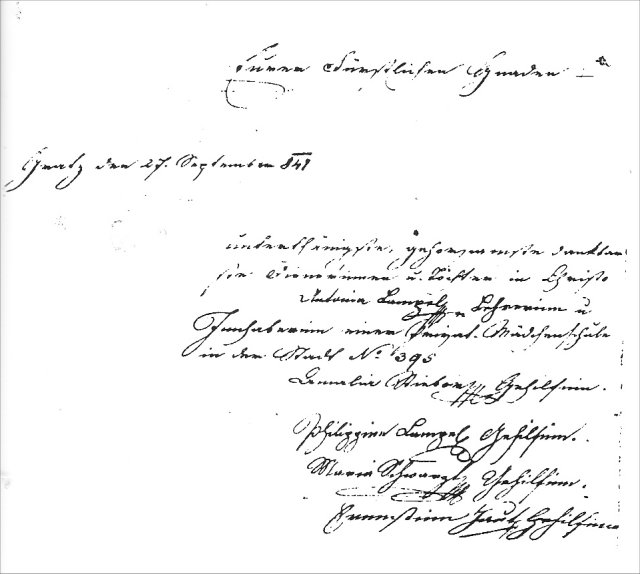 Eurer Fürstlichen Gnaden
Gratz den 27. September 841
unterthänigste, gehorsamste dankbar
ste Dienerinnen u. Töchter in Christo
Antonia Lampel Lehrerinn u
Innhaberinn einer Privat-Mädchenschule
in der Stadt No 395
Amalia Gehilfinn.
Philippine Lampel Gehilfinn.
Maria Schwarzl Gehilfinn.
Ernestine Gehilfinn